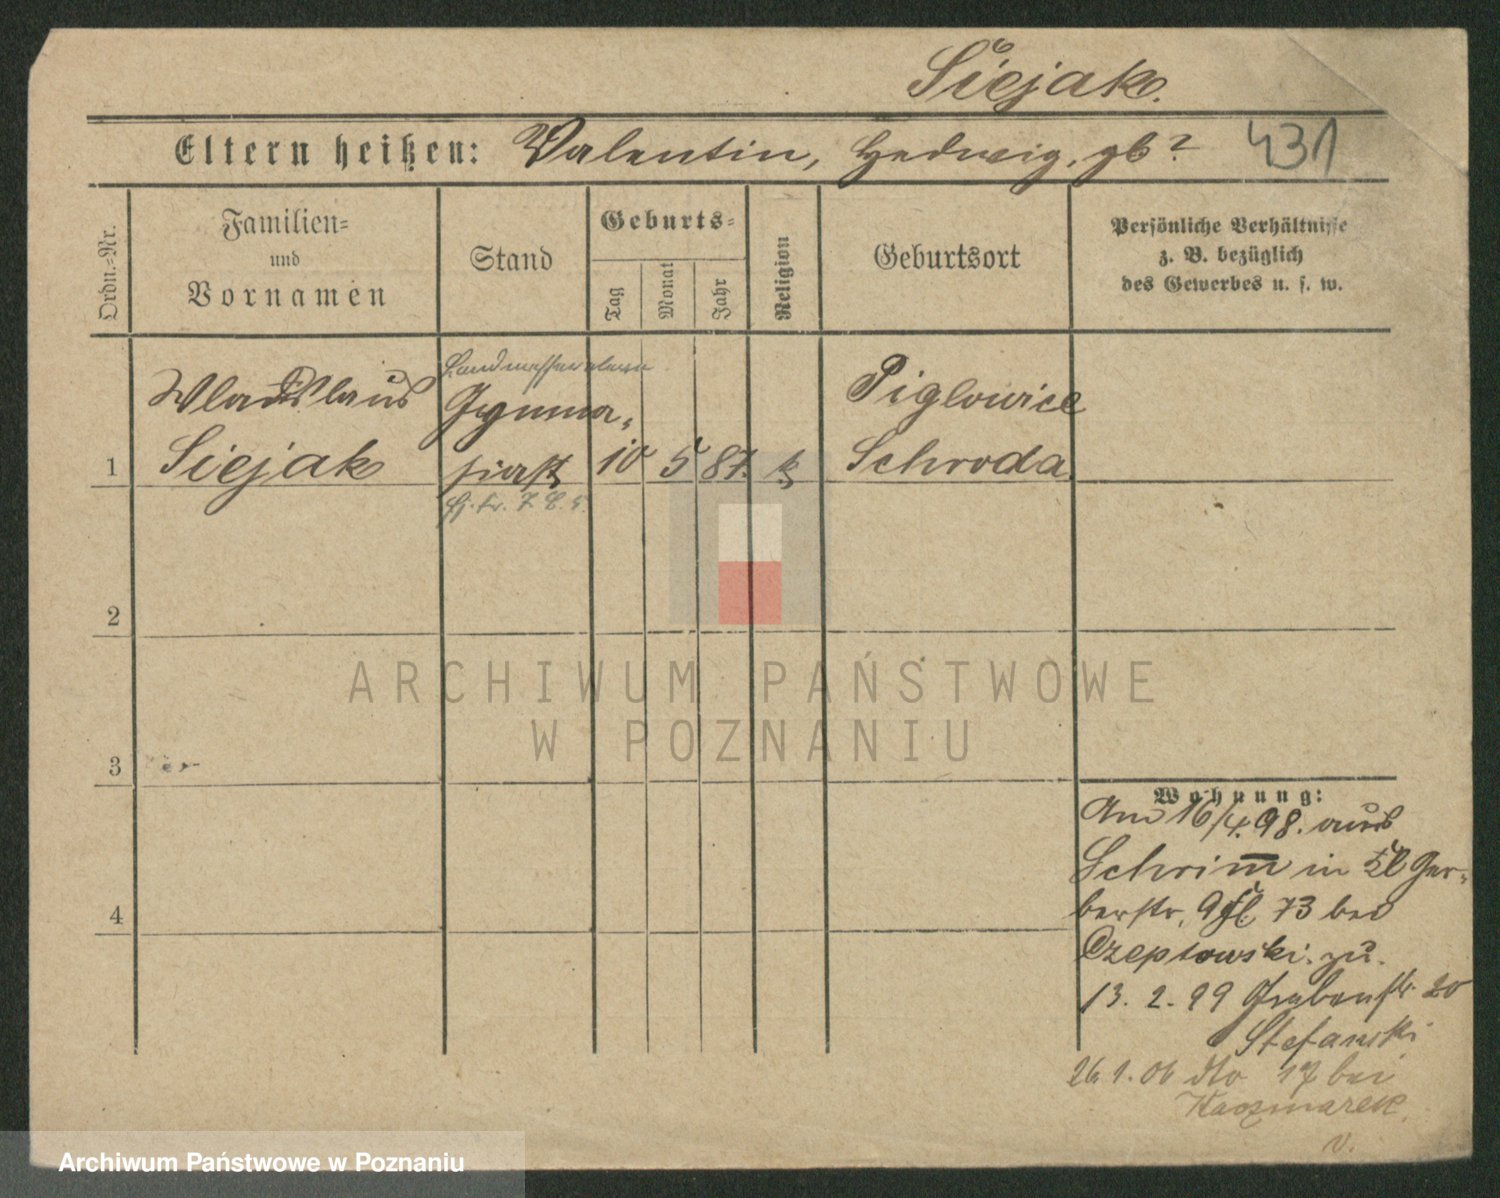 Siejak.
Eltern heißen: Valentin, Hedwig, gb?
431
Ordn.-Nr.
Familien-
und
Vornamen
Stand
Geburts-
Tag
Monat
Jahr
Religion
Geburtsort
Persönliche Verhältnisse
z. B. bezüglich
des Gewerbes u. s. w.
Wladislaus
Gymna-
Piglowice
1
Siejak
siast
10
5
87.
k
Schroda
2
3
4
Wohnung:
Am 16/4.98. aus
Schrimm in Kl Ger-
berstr. 9 73 bei
Czeplowski. zu.
13. 2. 99 Grabenstr 20
Stefanski
26 1. 06 dto 17 bei
Kaczmarek.
v.
ARCHIWUM PAŃSTWOWE
W POZNANIU
Archiwum Państwowe w Poznaniu